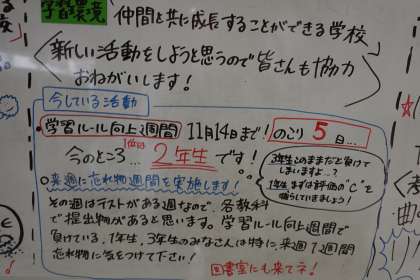 学習環境 「仲間と共に成長することができる学校」
新しい活動をしようと思うので皆さんも協力
おねがいします!
今している活動
学習ルール向上週間 11月14日まで! のこり 5日...
今のところ… 1位は 2年生 です!
3年生このままだと負けて
しまいますよ…?
1年生まずは評価の"C"を
減らしていきましょう!
来週に忘れ物週間を実施します!
その週はテストがある週なので、各教科
で提出物があると思います。学習ルール向上週間で
負けている、1年生、3年生のみなさんは特に、来週1週間
忘れ物に気をつけて下さい!
図書室にも来てネ!